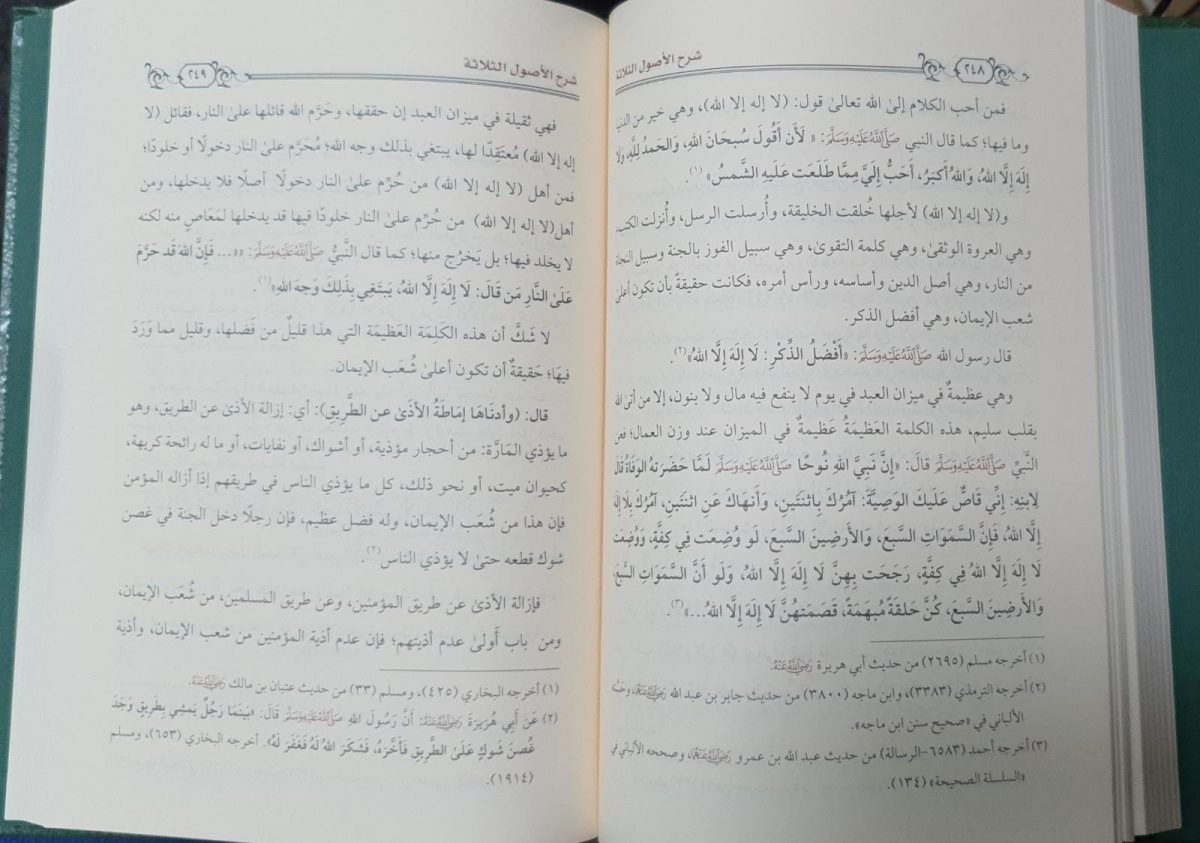 شرح الأصول الثلاثة
٢٤٨
فمن أحب الكلام إلىٰ الله تعالىٰ قول: (لا إله إلا الله)، وهي خير من الدنيا
وما فيها؛ كما قال النبي صَلَّى اللَّهُ عَلَيْهِ وَسَلَّمَ: «لَأَن أَقُولَ سُبحَانَ اللهِ، وَالحَمدُ للهِ، وَلَا
إِلَهَ إِلَّا اللهُ، وَاللهُ أَكبَرُ، أَحَبُّ إِلَيَّ مِمَّا طَلَعَت عَلَيهِ الشَّمسُ»(١).
و(لا إله إلا الله) لأجلها خُلقت الخليقة، وأُرسلت الرسل، وأُنزلت الكتب،
وهي العروة الوثقىٰ، وهي كلمة التقوىٰ، وهي سبيل الفوز بالجنة وسبيل النجاة
من النار، وهي أصل الدين وأساسه، ورأس أمره، فكانت حقيقةٌ بأن تكون أعلىٰ
شعب الإيمان، وهي أفضل الذكر.
قال رسول الله صَلَّى اللَّهُ عَلَيْهِ وَسَلَّمَ: «أَفْضَلُ الذِّكْرِ: لَا إِلَهَ إِلَّا اللهُ»(٢).
وهي عظيمةٌ في ميزان العبد في يوم لا ينفع فيه مال ولا بنون، إلا من أتىٰ الله
بقلب سليم، هذه الكلمة العَظيمَةُ عَظيمةٌ في الميزان عند وزن العمال؛ فعن
النَّبيِّ صَلَّى اللَّهُ عَلَيْهِ وَسَلَّمَ قالَ: «إِنَّ نَبِيَّ اللهِ نُوحًا صَلَّى اللَّهُ عَلَيْهِ وَسَلَّمَ لَمَّا حَضَرَتهُ الوَفَاةُ قَالَ
لِابنِهِ: إِنِّي قَاصٌّ عَلَيكَ الوَصِيَّةَ: آمُرُكَ بِاثنَتَينِ، وَأَنهَاكَ عَن اثنَتَينِ، آمُرُكَ بِلَا إِلَهَ
إِلَّا اللهُ، فَإِنَّ السَّمَوَاتِ السَّبعَ، وَالأَرضِينَ السَّبعَ، لَو وُضِعَت فِي كِفَّةٍ، وَوُضِعَت
لَا إِلَهَ إِلَّا اللهُ فِي كِفَّةٍ، رَجَحَت بِهِنَّ لَا إِلَهَ إِلَّا اللهُ، وَلَو أَنَّ السَّمَوَاتِ السَّبعَ،
وَالأَرضِينَ السَّبعَ، كُنَّ حَلقَةً مُبهَمَةً، قَصَمَتهُنَّ لَا إِلَهَ إِلَّا اللهُ...»(٣).
(١) أخرجه مسلم (٢٦٩٥) من حديث أبي هريرة رَضِيَ اللَّهُ عَنْهُ.
(٢) أخرجه الترمذي (٣٣٨٣)، وابن ماجه (٣٨٠٠) من حديث جابر بن عبد الله رَضِيَ اللَّهُ عَنْهُ،
الألباني في «صحيح سنن ابن ماجه».
(٣) أخرجه أحمد (٦٥٨٣-الرسالة) من حديث عبد الله بن عمرو رَضِيَ اللَّهُ عَنْهُمَا، وصححه الألباني في
«السلسلة الصحيحة» (١٣٤).
شرح الأصول الثلاثة
٢٤٩
فهي ثقيلة في ميزان العبد إن حققها، وحَرَّم الله قائلها علىٰ النار، فقائل (لا
إله إلا الله) مُعتَقِدًا لها، يبتغي بذلك وجه الله؛ مُحَرَّم علىٰ النار دخولًا أو خلودًا؛
فمن أهل (لا إله إلا الله) من حُرِّم علىٰ النار دخولًا أصلًا فلا يدخلها، ومن
أهل(لا إله إلا الله) من حُرِّم علىٰ النار خلودًا فيها قد يدخلها لمَعَاصٍ منه لكنه
لا يخلد فيها؛ بل يَخرُج منها؛ كما قال النَّبيُّ صَلَّى اللَّهُ عَلَيْهِ وَسَلَّمَ: «... فَإِنَّ اللهَ قَد حَرَّمَ
عَلَىٰ النَّارِ مَن قَالَ: لَا إِلَهَ إِلَّا اللهُ، يَبتَغِي بِذَلِكَ وَجهَ اللهِ»(١).
لا شَكَّ أن هذه الكَلمَة العَظيمَة التي هذا قليلٌ من فَضلها، وقليل مما وَرَدَ
فيهَا؛ حَقيقةٌ أن تكون أعلىٰ شُعَب الإيمان.
قال: (وأدنَاهَا إمَاطَةُ الأذَىٰ عن الطَّرِيقِ): أي: إزالة الأذىٰ عن الطريق، وهو
ما يؤذي المَارَّة: من أحجار مؤذية، أو أشواك، أو نفايات، أو ما له رائحة كريهة،
كحيوان ميت، أو نحو ذلك، كل ما يؤذي الناس في طريقهم إذا أزاله المؤمن
فإن هذا من شُعَب الإيمان، وله فضل عظيم، فإن رجلًا دخل الجنة في غصن
شوك قطعه حتىٰ لا يؤذي الناس(٢).
فإزالة الأذىٰ عن طريق المؤمنين، وعن طريق المسلمين، من شُعَب الإيمان،
ومن باب أَولىٰ عدم أذيتهم؛ فإن عدم أذية المؤمنين من شعب الإيمان، وأذية
(١) أخرجه البخاري (٤٢٥)، ومسلم (٣٣) من حديث عتبان بن مالك رَضِيَ اللَّهُ عَنْهُ.
(٢) عَن أَبِي هُرَيرَةَ رَضِيَ اللَّهُ عَنْهُ: أَنَّ رَسُولَ اللهِ صَلَّى اللَّهُ عَلَيْهِ وَسَلَّمَ قَالَ: «بَينَمَا رَجُلٌ يَمشِي بِطَرِيقٍ وَجَدَ
غُصنَ شَوكٍ عَلَىٰ الطَّرِيقِ فَأَخَّرَهُ، فَشَكَرَ اللهُ لَهُ فَغَفَرَ لَهُ». أخرجه البخاري (٦٥٣)، ومسلم
(١٩١٤).